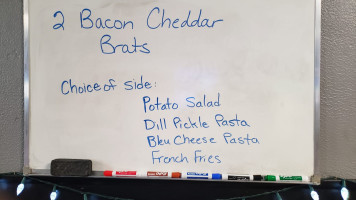 2 Bacon Cheddar
Brats
Choice of Side:
Potato Salad
Dill Pickle Pasta
Bleu Cheese Pasta
French Fries